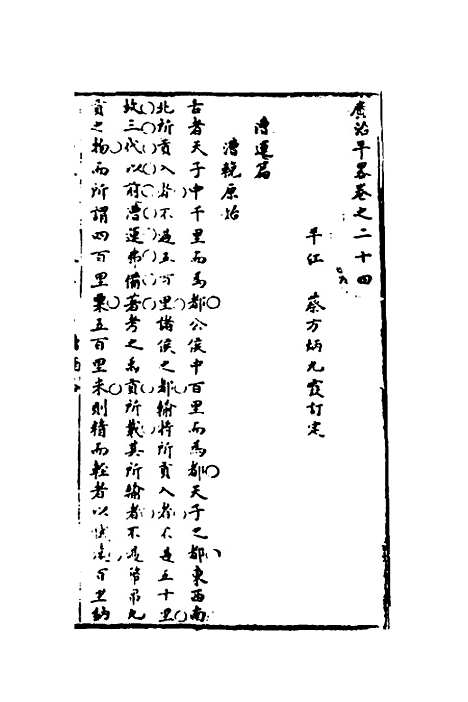 廣治平畧卷之二十四
平江 蔡方炳九霞訂定
漕運篇
漕輓原始
古者天子中千里而爲都公侯中百里而爲都天子之都東西南
北所貢入者不過五百里諸侯之都輸將所貢入者不過五十里
故三代以前漕運弗備著考之禹貢所載其所輸者不過幣帛九
貢之物而所謂四百里粟五百里米則精而輕者以 遠百里納